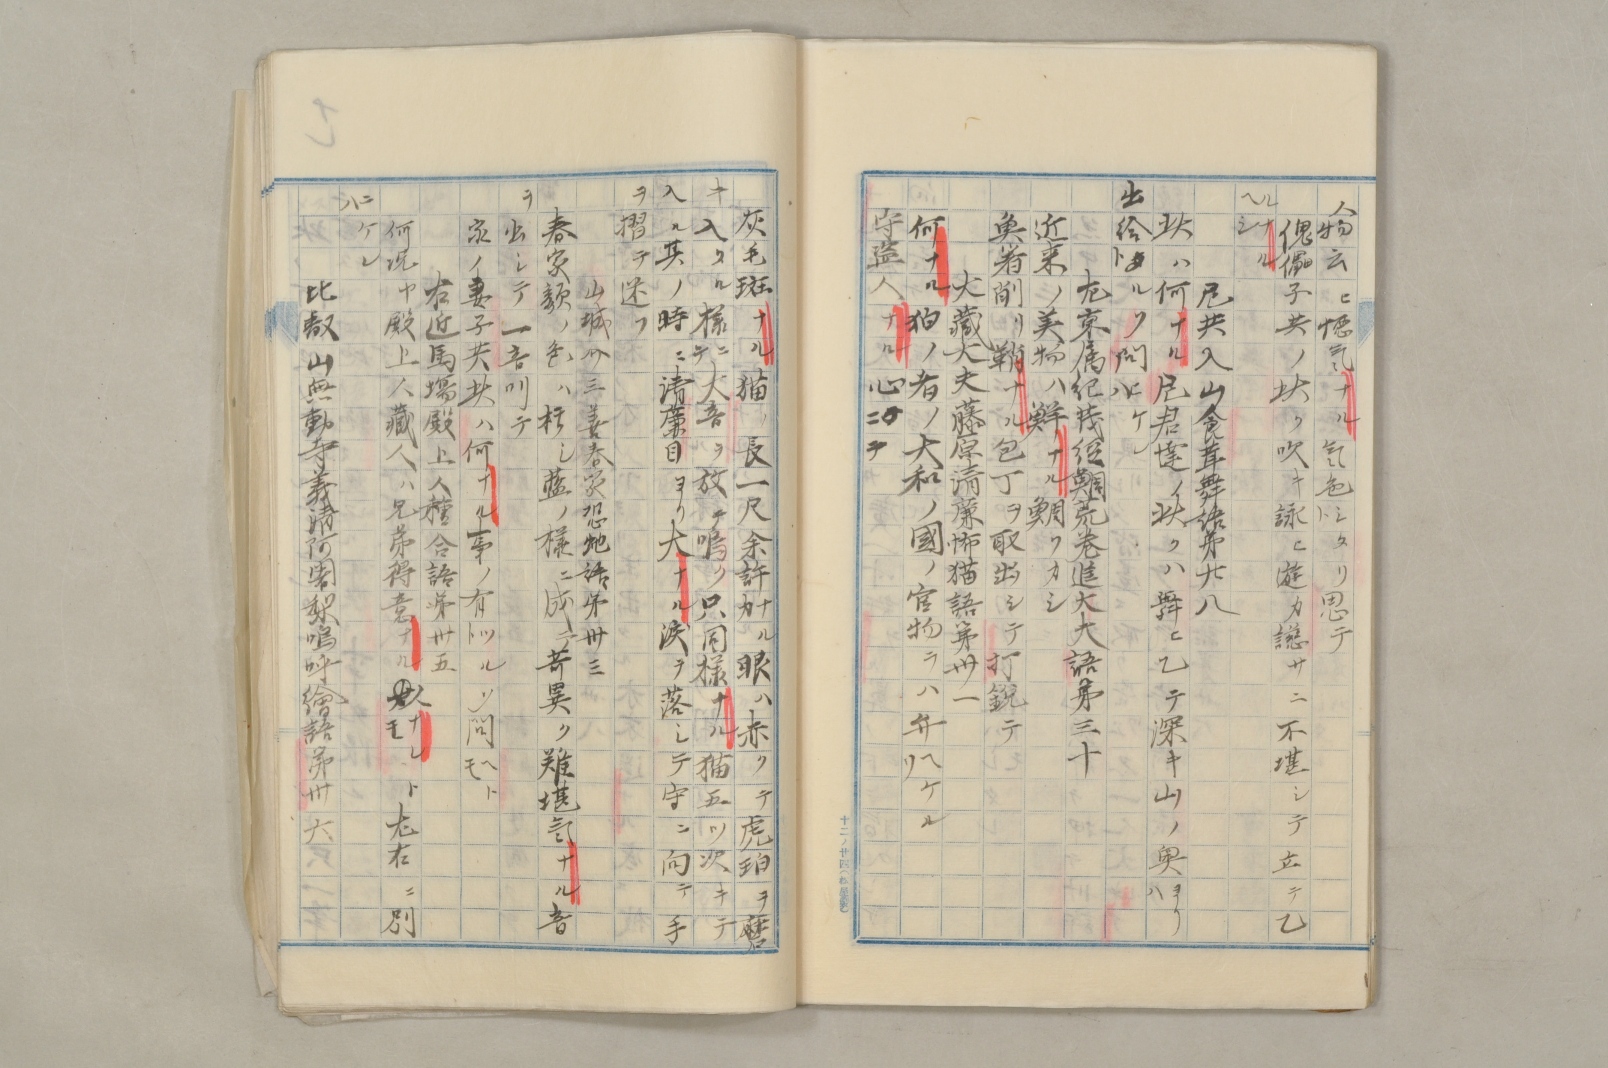 人物云ヒ愢気ナル気色ニシタリト思テ
傀儡子共ノ此ク吹キ詠ヒ遊カ謡サニ不堪シテ立テ乙
ヘルナルシ
尼共入山食茸舞語第廿八
此ハ何ナル尼君達ノ此クハ舞ヒ乙テ深キ山ノ奥ヨリハ
出給トルソト問ヒケレハ
左京属紀茂経鯛荒巻進大夫語第三十
近来ノ美物ハ鮮ナル鯛ソカシ
魚箸削リ鞘ナル包丁ヲ取出シテ打鋭テ
大蔵大夫藤原清廉怖猫語第卅一
何ナル狛ノ者ノ大和ノ國ノ官物ヲハ弁ヘケル
守盗人ナル心ニテ
灰毛斑ナル猫ノ長一尺余許ナルカ眼ハ赤クテ虎珀ヲ磨
キ入タル様ニテ大音ヲ放テ鳴ク只同様ナル猫五ツ次キテ
入ル其ノ時ニ清廉目ヨリ大ナル涙ヲ落シテ守ニ向テ手
ヲ摺テ迷フ
山城介三善春家恐虵語第卅三
春家顔ノ色ハ朽シ藍ノ様ニ成テ奇異ク難堪気ナル音
ヲ出シテ一音叫テ
家ノ妻子共此ハ何ナル事ノ有ツルソト問ヘトモ
右近馬場殿上人種合語第卅五
何况ヤ殿上人蔵人ハ兄弟得意ナル人ナレトモ左右ニ別
ニケレハ
比叡山無動寺義清阿闍梨嗚呼繪語第卅六
十二ノ廿四(松屋製)